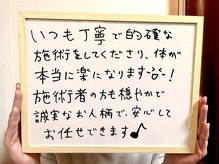 いつも丁寧で的確な
施術をしてくださり、体が
本当に楽になります~!
施術者の方も穏やかで
誠実なお人柄で、安心して
お任せできます♪